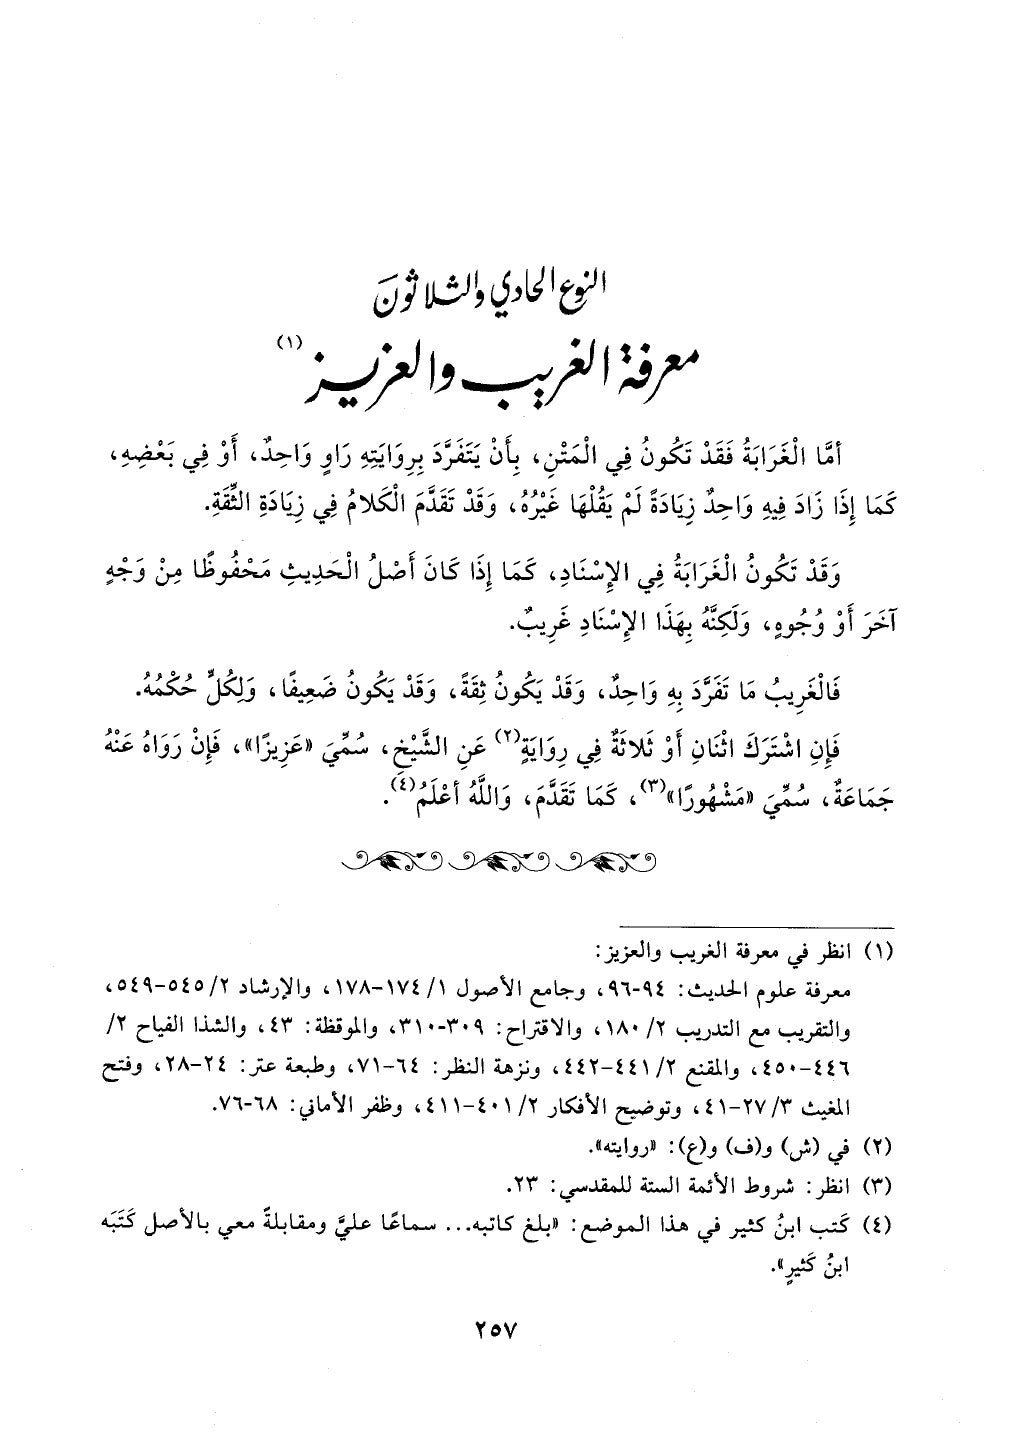 النوع الحادي والثلاثون
معرفة الغريب والعزيز (١)
أمَّا الْغَرَابَةُ فَقَدْ تَكُونُ فِي الْمَتْنِ، بِأَنْ يَتَفَرَّدَ بِرِوَايَتِهِ رَاوٍ وَاحِدٌ، أَوْ فِي بَعْضِهِ،
كَمَا إِذَا زَادَ فِيهِ وَاحِدٌ زِيَادَةً لَمْ يَقُلْهَا غَيْرُهُ، وَقَدْ تَقَدَّمَ الْكَلامُ فِي زِيَادَةِ الثِّقَةِ.
وَقَدْ تَكُونُ الْغَرَابَةُ فِي الإِسْنَادِ، كَمَا إِذَا كَانَ أَصْلُ الْحَدِيثِ مَحْفُوظًا مِنْ وَجْهٍ
آخَرَ أَوْ وُجُوهٍ، وَلَكِنَّهُ بِهَذَا الإِسْنَادِ غَرِيبٌ.
فَالْغَرِيبُ مَا تَفَرَّدَ بِهِ وَاحِدٌ، وَقَدْ يَكُونُ ثِقَةً، وَقَدْ يَكُونُ ضَعِيفًا، وَلِكُلٍّ حُكْمُهُ.
فَإِنِ اشْتَرَكَ اثْنَانِ أَوْ ثَلاثَةٌ فِي رِوَايَةٍ(٢) عَنِ الشَّيْخِ، سُمِّيَ «عَزِيزًا»، فَإِنْ رَوَاهُ عَنْهُ
جَمَاعَةٌ، سُمِّيَ «مَشْهُورًا»(٣)، كَمَا تَقَدَّمَ، وَاللَّهُ أَعْلَمُ(٤).
(١) انظر في معرفة الغريب والعزيز:
معرفة علوم الحديث: ٩٤-٩٦، وجامع الأصول ١/ ١٧٤-١٧٨، والإرشاد ٢/ ٥٤٥-٥٤٩،
والتقريب مع التدريب ٢/ ١٨٠، والاقتراح: ٣٠٩-٣١٠، والموقظة: ٤٣، والشذا الفياح ٢/
٤٤٦-٤٥٠، والمقنع ٢/ ٤٤١-٤٤٢، ونزهة النظر: ٦٤-٧١، وطبعة عتر: ٢٤-٢٨، وفتح
المغيث ٣/ ٢٧-٤١، وتوضيح الأفكار ٢/ ٤٠١-٤١١، وظفر الأماني: ٦٨-٧٦.
(٢) في (ش) و(ف) و(ع): «روايته».
(٣) انظر: شروط الأئمة الستة للمقدسي: ٢٣.
(٤) كَتب ابنُ كثير في هذا الموضع: «بلغ كاتبه... سماعًا عليَّ ومقابلةً معي بالأصل كَتَبَه
ابنُ كَثيرٍ».
٢٥٧